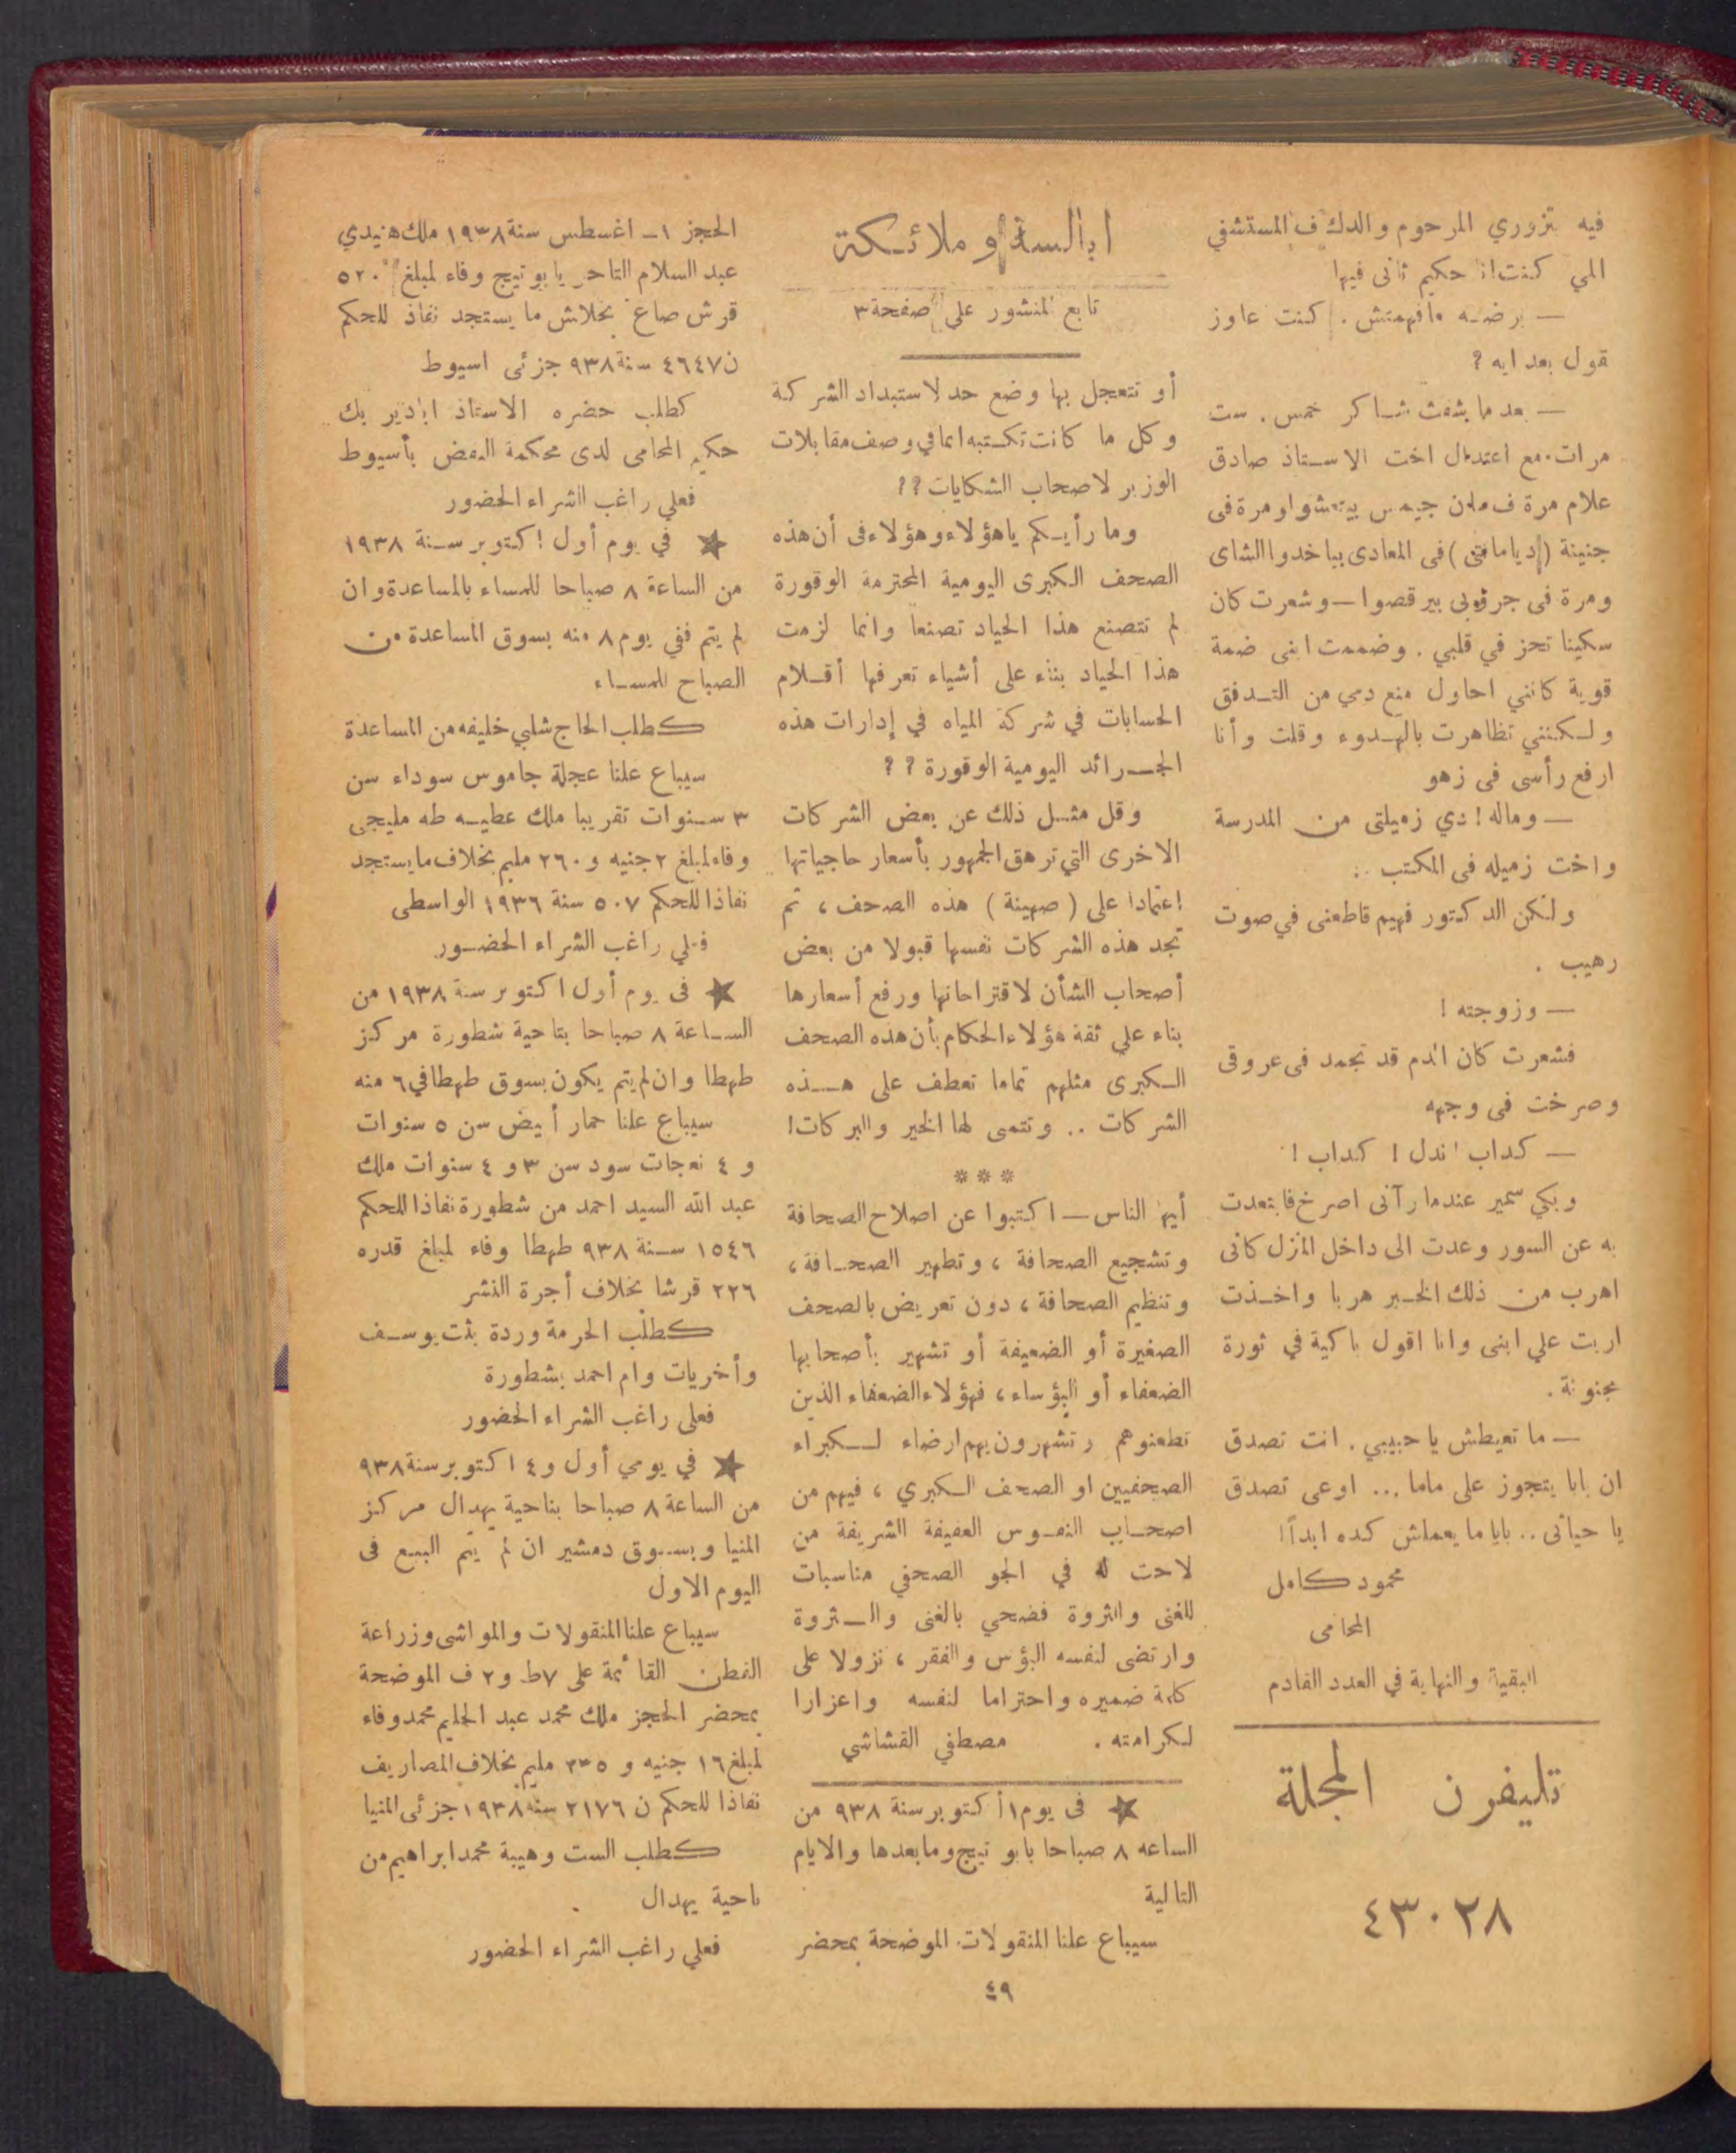 فيه بتزوري المرحوم والدك ف المستشفي
اللي كنت انا حكيم ثانى فيها
— برضه مافهمتش . كنت عاوز
تقول بعد ايه ?
— بعد ما بشفت شاكر خمس . ست
مرات . مع اعتدال اخت الاستاذ صادق
علام مرة ف ملن جيمس بيتمشوا ومرة فى
جنينة ( ديامانتى ) فى المعادى بياخدوا الشاى
ومرة فى جروبى بيرقصوا — وشعرت كان
سكينا تحز في قلبي . وضممت ابنى ضمة
قوية كانني احاول منع دمي من التدفق
ولكننى تظاهرت بالهدوء وقلت وأنا
ارفع رأسى فى زهو
— وماله ! دي زميلتى من المدرسة
واخت زميله فى المكتب ..
ولكن الدكتور فهيم قاطعنى في صوت
رهيب .
— وزوجته !
فشعرت كان الدم قد تجمد فى عروقى
وصرخت فى وجهه
— كداب اندل ! كداب !
وبكي سمير عندما رآنى اصرخ فابتعدت
به عن السور وعدت الى داخل المنزل كانى
اهرب من ذلك الخبر هربا واخذت
اربت علي ابنى وانا اقول باكية في ثورة
مجنونة .
— ما تعيطش يا حبيبي . انت تصدق
ان بابا يتجوز على ماما ... اوعى تصدق
يا حياتى .. بابا ما يعملش كده ابداً !
محمود كامل
المحامى
البقية والنهاية في العدد القادم
تليفون المجلة
٤٣٠٢٨
ابالسة وملائكة
تابع المنشور على صفحة ٣
أو تتعجل بها وضع حد لاستبداد الشركة
وكل ما كانت تكتبه انما في وصف مقابلات
الوزير لاصحاب الشكايات ? ?
وما رأيكم ياهؤلاء وهؤلاء فى أن هذه
الصحف الكبرى اليومية المحترمة الوقورة
لم تتصنع هذا الحياد تصنعا وانما لزمت
هذا الحياد بناء على أشياء تعرفها أقلام
الحسابات في شركة المياه في إدارات هذه
الجرائد اليومية الوقورة ? ?
وقل مثل ذلك عن بعض الشركات
الاخرى التي ترهق الجمهور بأسعار حاجياتها
إعتمادا على ( صهينة ) هذه الصحف ، ثم
تجد هذه الشركات نفسها قبولا من بعض
أصحاب الشأن لاقتراحاتها ورفع أسعارها
بناء علي ثقة هؤلاء الحكام بأن هذه الصحف
الكبرى مثلهم تماما تعطف على هذه
الشركات .. وتتمى لها الخير والبركات !
***
أيها الناس — اكتبوا عن اصلاح الصحافة
وتشجيع الصحافة ، وتطهير الصحافة ،
وتنظيم الصحافة ، دون تعريض بالصحف
الصغيرة أو الضعيفة أو تشهير بأصحابها
الضعفاء أو البؤساء ، فهؤلاء الضعفاء الذين
تطعنوهم وتشهرون بهم ارضاء لكبراء
الصحفيين او الصحف الكبري ، فيهم من
اصحاب النفوس العفيفة الشريفة من
لاحت له في الجو الصحفي مناسبات
للغنى والثروة فضحي بالغنى والثروة
وارتضى لنفسه البؤس والفقر ، نزولا على
كلمة ضميره واحتراما لنفسه واعزازا
لكرامته . مصطفي القشاشي
★ فى يوم ١ أكتوبر سنة ٩٣٨ من
الساعه ٨ صباحا بابو تيج وما بعدها والايام
التالية
سيباع علنا المنقولات الموضحة بمحضر
الحجز ١ - اغسطس سنة ١٩٣٨ ملك هنيدي
عبد السلام التاجر يابوتيج وفاء لمبلغ ٥٢٠
قرش صاغ بخلاش ما يستجد نفاذ للحكم
ن ٤٦٤٧ سنة ٩٣٨ جزئى اسيوط
كطلب حضره الاستاذ ابادير بك
حكيم المحامى لدى محكمة النقض بأسيوط
فعلي راغب الشراء الحضور
★ في يوم أول اكتوبر سنة ١٩٣٨
من الساعة ٨ صباحا للمساء بالمساعدة وان
لم يتم ففي يوم ٨ منه بسوق المساعدة من
الصباح للمساء
كطلب الحاج شلبي خليفه من المساعدة
سيباع علنا عجلة جاموس سوداء سن
٣ سنوات تقريبا ملك عطيه طه مليجى
وفاء لمبلغ ٢ جنيه و ٢٦٠ مليم بخلاف ما يستجد
نفاذا للحكم ٥٠٧ سنة ١٩٣٦ الواسطى
فعلي راغب الشراء الحضور
★ فى يوم أول اكتوبر سنة ١٩٣٨ من
الساعة ٨ صباحا بناحية شطورة مركز
طهطا وان لم يتم يكون بسوق طهطا في ٦ منه
سيباع علنا حمار أبيض سن ٥ سنوات
و ٤ نعجات سود سن ٣ و ٤ سنوات ملك
عبد الله السيد احمد من شطورة نفاذا للحكم
١٥٤٦ سنة ٩٣٨ طهطا وفاء لمبلغ قدره
٢٢٦ قرشا بخلاف أجرة النشر
كطلب الحرمة وردة بنت يوسف
وأخريات وام احمد بشطورة
فعلى راغب الشراء الحضور
★ في يومي أول و ٤ اكتوبر سنة ٩٣٨
من الساعة ٨ صباحا بناحية يهدال مركز
المنيا وبسوق دمشير ان لم يتم البيع فى
اليوم الاول
سيباع علنا المنقولات والمواشى وزراعة
القطن القائمة على ٧ ط و ٢ ف الموضحة
بمحضر الحجز ملك محمد عبد الحليم محمد وفاء
لمبلغ ١٦ جنيه و ٢٣٥ مليم بخلاف المصاريف
نفاذا للحكم ن ٢١٧٦ سنة ١٩٣٨ جزئى المنيا
كطلب الست وهيبة محمد ابراهيم من
ناحية يهدال
فعلي راغب الشراء الحضور
٤٩